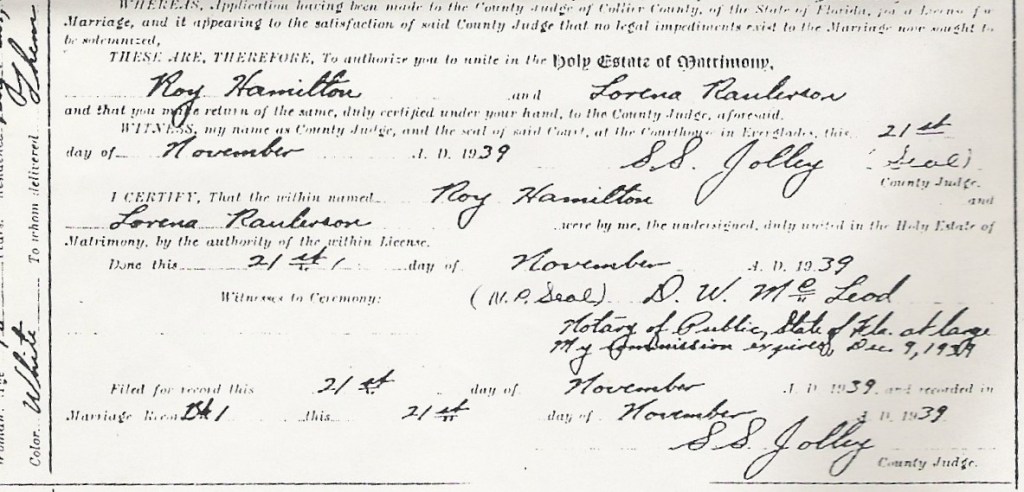 WHEREAS, Application having been made to the County Judge of Collier County, of the State of Florida, for a License for
Marriage, and it appearing to the satisfaction of said County Judge that no legal impediments exist to the Marriage now sought to
be solemnized,
THESE ARE, THEREFORE, To authorize you to unite in the Holy Estate of Matrimony,
Roy Hamilton and Lorena Raulerson
and that you make return of the same, duly certified under your hand, to the County Judge, aforesaid.
WITNESS, my name as County Judge, and the seal of said Court, at the Courthouse in Everglades, this 21st
day of November A. D. 1939 S.S. Jolley (Seal)
County Judge.
I CERTIFY, That the within named Roy Hamilton and
Lorena Raulerson were by me, the undersigned, duly united in the Holy Estate of
Matrimony, by the authority of the within License.
Done this 21st day of November A. D. 1939
Witnesses to Ceremony: (N.P. Seal) D. W. McLeod
Notary of Public, State of Fla. at large
My commission expires, Dec. 9, 1939
Filed for record this 21st day of November A. D. 1939 and recorded in
Marriage Record Bk 1 this 21st day of November A. D. 1939
S.S. Jolley
County Judge.
Color White To whom delivered